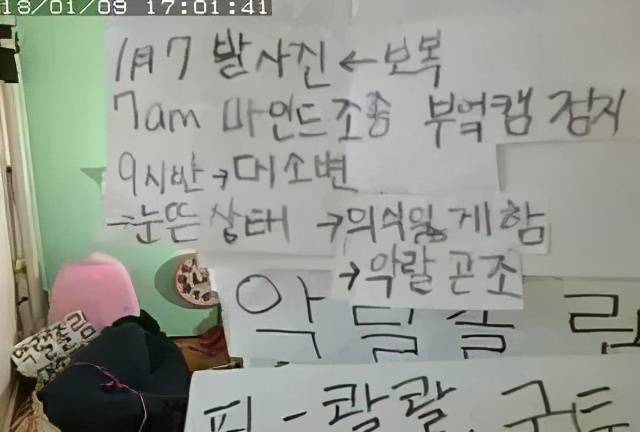 18/01/09 17:01:41
1月7 발사진 ← 보복
7am 마인드조종 부엌캠 점지
9시반 → 대소변
→ 눈뜬 상태 → 의식잃게함
→ 악랄 곧조
악
피 - 콸콸, 구토